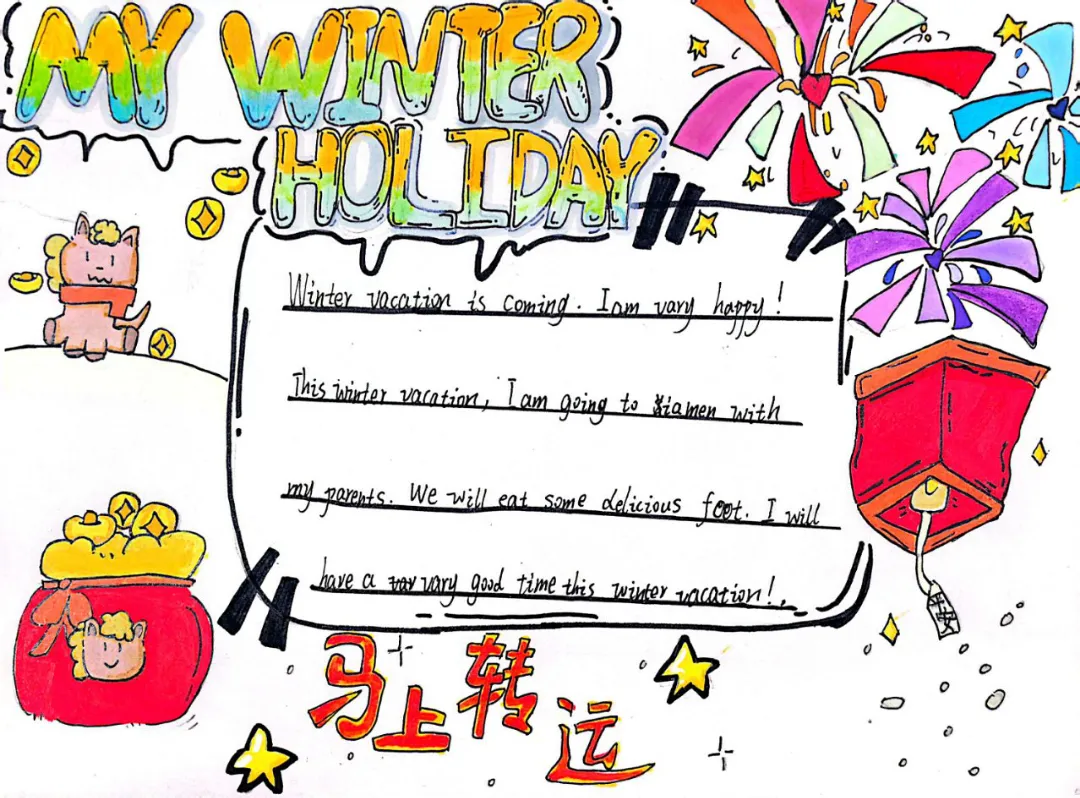 MY WINTER
HOLIDAY
Winter vacation is coming. I am vary happy!
This winter vacation, I am going to Xiamen with
my parents. We will eat some delicious foot. I will
have a vary good time this winter vacation!.
马上转运